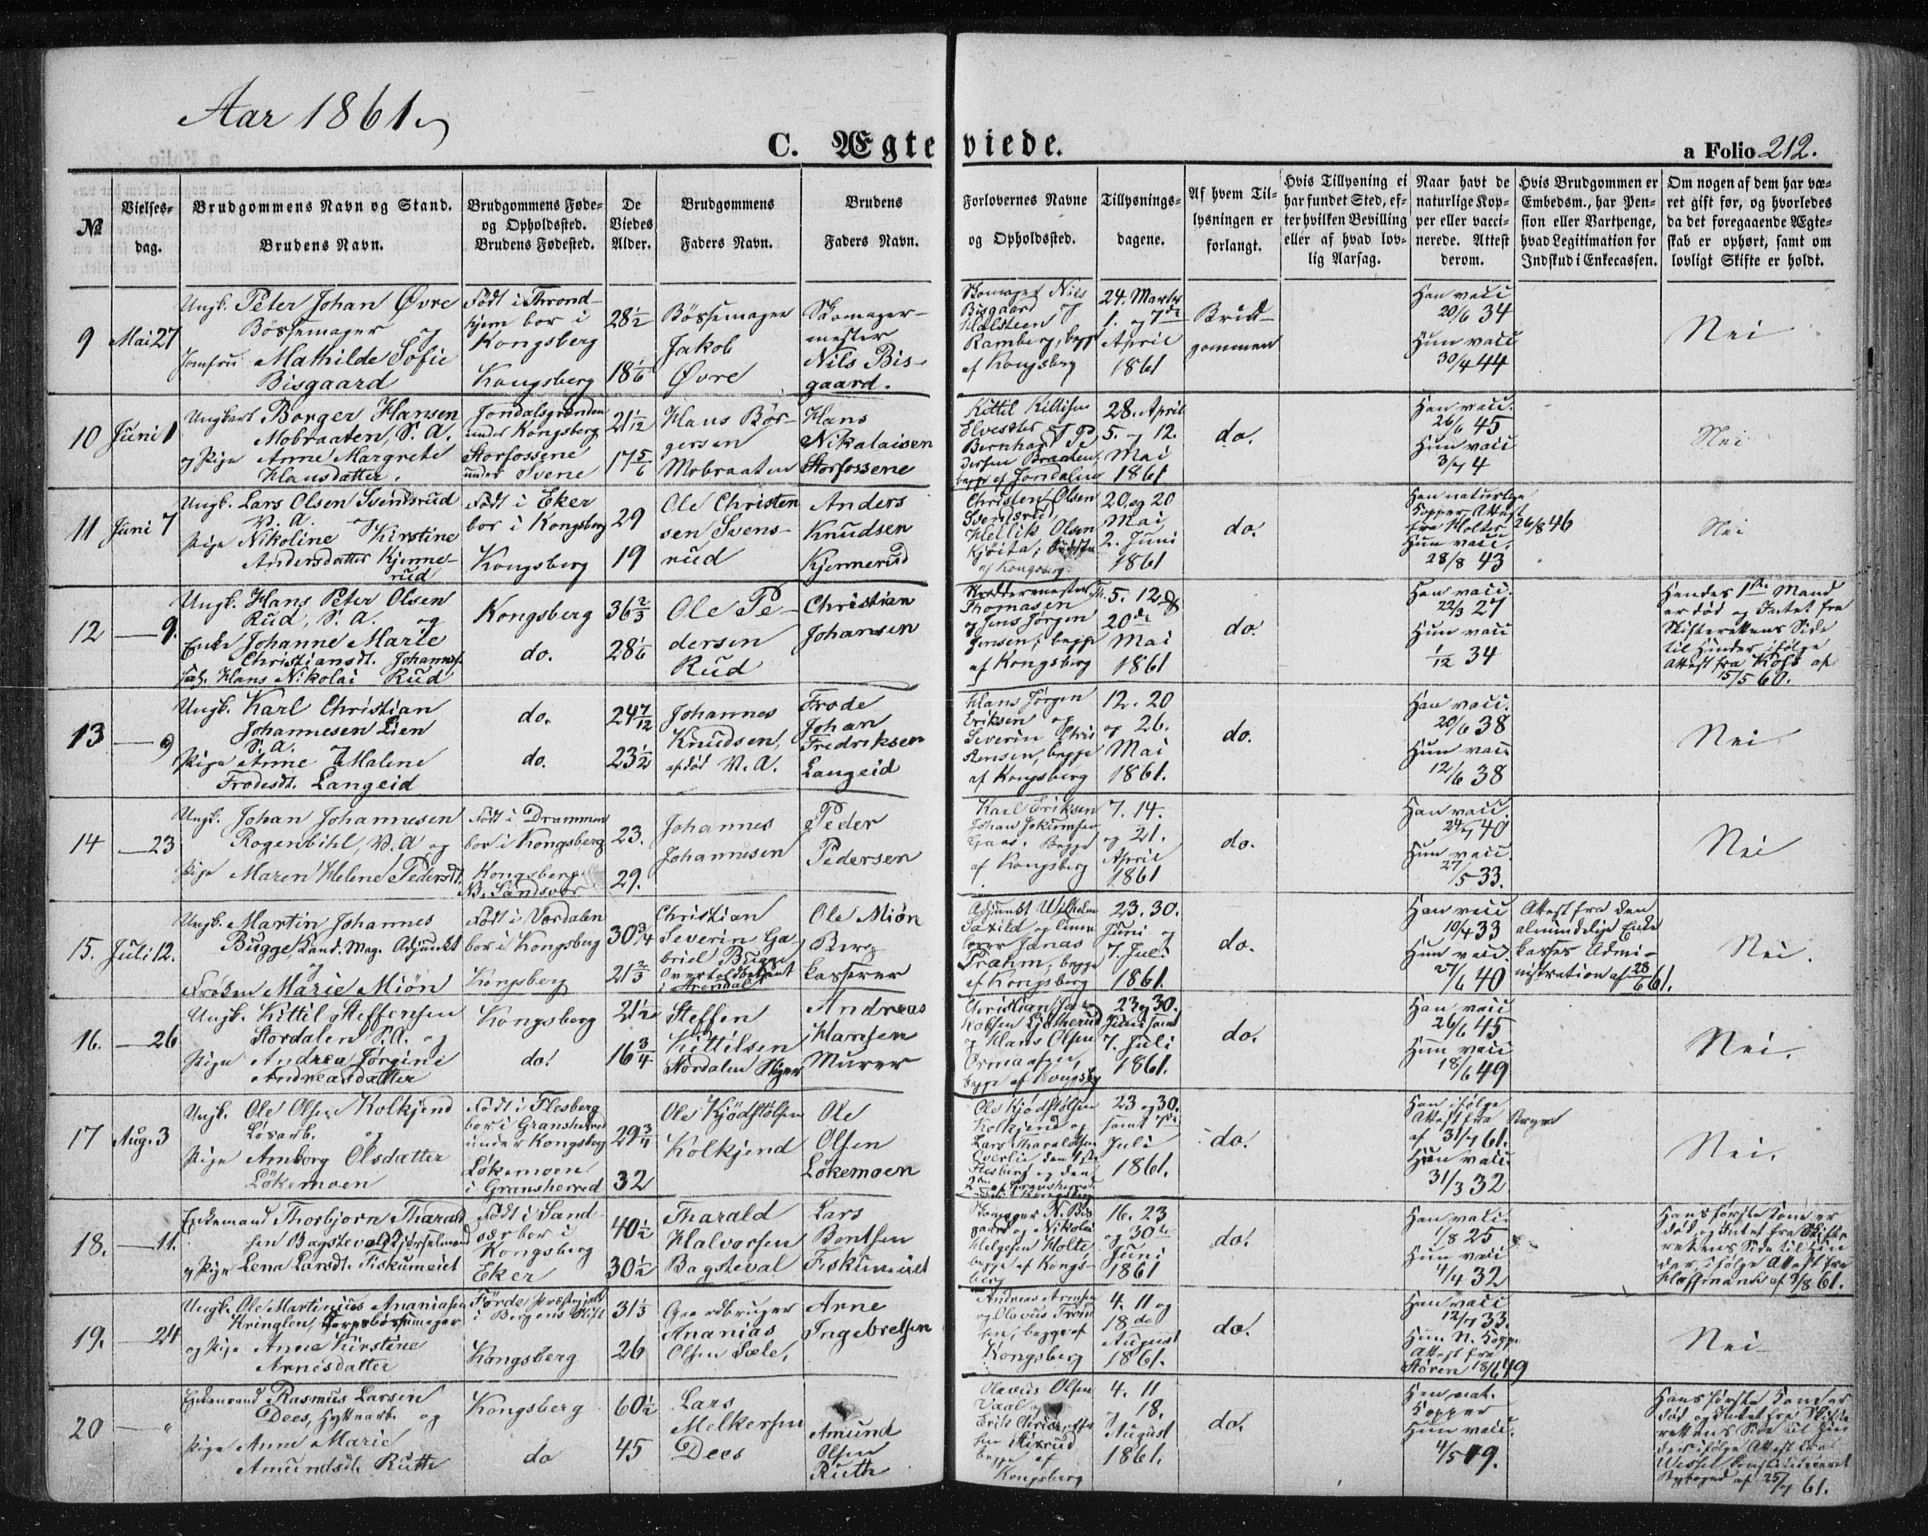 Aar 1861.
C. Ægteviede.
a Folio 212.
№
Vielses-
dag.
Brudgommens Navn og Stand.
Brudens Navn.
Brudgommens Føde-
og Opholdssted.
Brudens Fødested.
De
Viedes
Alder.
Brudgommens
Faders Navn.
Brudens
Faders Navn.
Forlovernes Navne
og Opholdssted.
Tillysnings-
dagene.
Af hvem Til-
lysningen er
forlangt.
Hvis Tillysning ei
har fundet Sted, ef-
ter hvilken Bevilling
eller af hvad lov-
lig Aarsag.
Naar havt de
naturlige Kop-
per eller vacci-
nerede. Attest
derom.
Hvis Brudgommen er
Embedsm., har Pen-
sion eller Vartpenge,
hvad Legitimation for
Indskud i Enkecassen.
Om nogen af dem har væ-
ret gift før, og hvorledes
da det foregaaende Ægte-
skab er ophørt, samt om
lovligt Skifte er holdt.
9
Mai 27
Ungk. Peter Johan Øvre
Bössemager og
Jomfru Mathilde Sofie
Bisgaard
Födt i Thrond-
hjem bor i
Kongsberg
Kongsberg
28 1/2
18 1/6
Bössemager
Jakob
Øvre
Skomager-
mester
Nils Bis-
gaard.
Skomager Nils
Bisgaard og
Halsteen
Ramberg, begge
af Kongsberg
24. Marts
1. og 7de
April
1861
Brud-
gommen
Han vacc
20/6 34
Hun vacc
30/4 44
Nei
10
Juni 1
Ungkarl Borger Hansen
Mobraaten, S. A.
og Pige Anne Margrete
Hansdatter.
Jondalsgrænden
under Kongsberg
Storfossene
under Svene
21 1/12
17 5/6
Hans Bör-
gersen
Mobraaten
Hans
Nikolaisen
Storfossene
Kittil Killisen
Elvester og
Bernhard Pe
dersen Braaten,
begge af Jondalen
28. April
5. og 12.
Mai
1861
do.
Han vacc.
26/6 45
Hun vacc
3/7 4
Nei
11
Juni 7
Ungk. Lars Olsen Svendsrud
Pige Nikoline Kirstine
Andersdatter Kjenne-
rud
Födt i Eker
bor i Kongsberg
Kongsberg
29
19
Ole Christen
sen Svens-
rud
Anders
Knudsen
Kjennerud
Christen Olsen
Svendsrud,
Hellik Olsen
af Kongsberg
20 og 20
Mai
2. Juni
1861
do.
Han naturlige
Kopper Attest
fra Holter 26/8 46
Hun vacc.
28/8 43
Nei
12
— 9.
Ungk. Hans Peter Olsen
Rud, S. A. og
Enke Johanne Marie
Christiansdt. Johannes
Hans Nikolai Rud
Kongsberg
do.
36 2/3
28 1/6
Ole Pe-
dersen
Rud
Christian
Johansen
Thomasen
og Jens Jörgen
Jensen, begge
af Kongsberg
5. 12 og
20de
Mai
1861
do.
Han vacc.
22/3 27
Hun vacc
1/12 34
Hendes 1ste Mand
er död og Intet fra
Skifterettens Side
til Hinder ifölge
Attest fra
15/5 60.
13
— 9
Ungk. Karl Christian
Johannesen Lien
S. A. og
Pige Anne Malene
Frodesdt. Langeid
do.
do.
24 7/12
23 1/2
Johannes
Knudsen,
afdöd
Frode
Johan
Fredriksen
Langeid
Hans Jörgen
Eriksen og
Severin Chris
tensen, begge
af Kongsberg
12. 20
og 26.
Mai
1861.
do.
Han vacc.
20/6 38
Hun vacc
12/6 38
Nei
14
— 23
Ungk. Johan Johannesen
Rogenbihl, og
Pige Maren Helene Pedersdt.
Födt i Drammen
bor i Kongsberg
Kongsberg
N. Sandsvær
23.
29.
Johannes
Johannesen
Peder
Pedersen
Karl Eriksen
Begge
af Kongsberg
7. 14.
og 21.
April
1861
do.
Han vacc.
24/7 40
Hun vacc.
27/5 33.
Nei
15.
Juli 12.
Ungk. Martin Johannes
Bugge, Kand. Mag. Adjunkt
og
Fröken Marie Miön
Födt i Værdalen
bor i Kongsberg
Kongsberg
30 3/4
21 2/3
Christian
Severin Ga-
briel Bugge
Overtoldbetjent
i Arendal
Ole Miön
Berg
kasserer
Adjunkt Wilhelm
Saxild og
Jonas
Prahm, begge
af Kongsberg
23. 30.
Juni og
7. Juli
1861.
do.
Han vacc
10/4 33
Hun vacc.
27/6 40
Attest fra den
almindelige Enke
kasses Admi-
nistration af 28/6 61.
Nei.
16.
— 26
Ungk. Kittil Steffensen
Stordalen S. A. og
Pige Andrea Jörgine
Andreasdatter
Kongsberg
do.
21 1/2
16 3/4
Steffen
Kittilsen
Stordalen
Andreas
Hansen
Murer
Christian Ja
kobsen
og Hans Olsen
begge af Kongsbg
23 og 30.
Juni samt
7. Juli
1861.
do.
Han vacc
26/6 45
Hun vacc
18/6 49
Nei.
17
Aug. 3
Ungk. Ole Olsen Kolkjend
Lösarb. og
Pige Amborg Olsdatter
Lökemoen
Födt i Flesberg
bor i Gransherred
under Kongsberg
Lökemoen
i Gransherred
29 3/4
32
Ole Kjödstölsen
Kolkjend
Ole
Olsen
Lökemoen
Ole Kjödstölsen
Kolkjend og
Lars Tharaldsen
Overlie den 1ste
Flesberg og den
2den af Gransherred
23 og 30.
samt 7de
Juli
1861.
do.
Han ifölge
Attest fra
af 31/7 61.
Hun vacc.
31/3 32
Nei.
18.
— 11.
Enkemand Thorbjörn Tharald
sen Bagsteval, Kjörselmand
og Pige Lena Larsdt. Fiskumeiet
Födt i Sand-
svær bor i
Kongsberg
Eker
40 1/2
30 1/2
Tharald
Halvorsen
Bagsteval
Lars
Bentsen
Fiskumeiet
Skomager N. Bis
gaard og Nikolai
Helgesen Holte
begge af Kongs-
berg
16. 23
og 30te
Juni
1861
do.
Han vacc.
1/8 25
Hun vacc
4/4 32
Hans förste Kone er
död, og Intet fra Skifte
rettens Side til Hin
der, ifölge Attest fra
af 3/8 61.
19.
— 24
Ungk. Ole Martinius Ananiasen
Kringlen,
og Pige Anne Kirstine
Arnesdatter
Förde Præstegjeld
i Bergens Stift
Kongsberg
31 1/3
26
Gaardbruger
Ananias
Olsen Sæle.
Arne
Ingebretsen
Andreas Arnesen
og Olavus
begge af
Kongsberg
4. 11 og
18de
August
1861.
do.
Han vacc
12/7 33.
Hun N. Kopp.
Attest fra
Stören 18/6 49
Nei
20
— "
Enkemand Rasmus Larsen
Dees, Hyttearb. og
Pige Anne Marie
Amundsdt. Ruth
Kongsberg
do
60 1/2
45
Lars
Melkersen
Dees
Amund
Olsen
Ruth
Olavus Olsen
Vaal og
begge af
Kongsberg
4. 11
og 18.
August
1861.
do.
Han nat.
Kopper
Hun vacc.
4/5 19.
Hans förste Kone er
död og Intet fra Skifte
rettens Side til Hin
der ifölge Attest fra
Wessel konstitueret
Byfoged af 25/7 61.